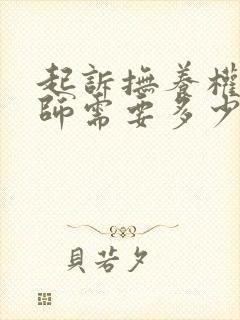 起訴撫養權
師需要多少
貝若夕